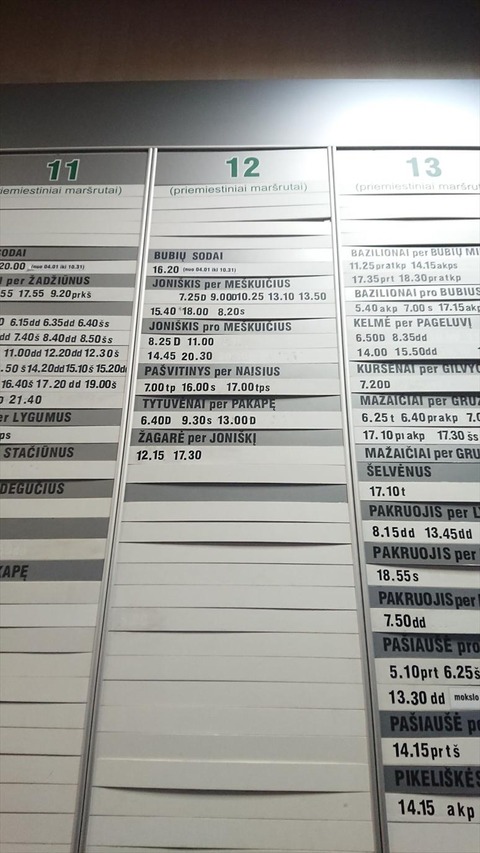 11
priemiestiniai maršrutai)
SODAI
20.00 (nuo 04.01 iki 10.31)
per ŽADŽIŪNUS
55 17.55 9.20prkš
6.15dd 6.35dd 6.40šs
dd 7.40š 8.40d 8.50šs
11.00dd 12.20dd 12.30š
50š 14.20dd 15.10š 15.20d
16.40š 17.20dd 19.00š
21.40
per LYGUMUS
ps
STAČIŪNUS
DEGUČIUS
KAPĘ
12
(priemiestiniai maršrutai)
BUBIŲ SODAI
16.20 (nuo 04.01 iki 10.31)
JONIŠKIS per MEŠKUIČIUS
7.25D 9.00D 10.25 13.10 13.50
15.40 18.00 8.20s
JONIŠKIS pro MEŠKUIČIUS
8.25 D 11.00
14.45 20.30
PAŠVITINYS per NAISIUS
7.00tp 16.00s 17.00tps
TYTUVĖNAI per PAKAPĘ
6.40D 9.30s 13.00D
ŽAGARĖ per JONIŠKĮ
12.15 17.30
13
(priemiestiniai maršrut
BAZILIONAI per BUBIŲ MI
11.25pratkp 14.15akps
17.35prt 18.30pratkp
BAZILIONAI pro BUBIUS
5.40akp 7.00s 17.15akp
KELMĖ per PAGELUVĮ
6.50D 8.35dd
14.00 15.50dd
KURŠĖNAI per GILVYČ
7.20D
MAŽAIČIAI per GRUZ
6.25t 6.40prakp 7.0
17.10pi akp 17.30šs
MAŽAIČIAI per GRU
ŠELVĖNUS
17.10t
PAKRUOJIS per L
8.15dd 13.45dd
PAKRUOJIS per
18.55s
PAKRUOJIS per
7.50dd
PAŠIAUŠĖ pro
5.10prt 6.25š
13.30 dd mokslo
PAŠIAUŠĖ p
14.15prtš
PIKELIŠKĖS
14.15 akp